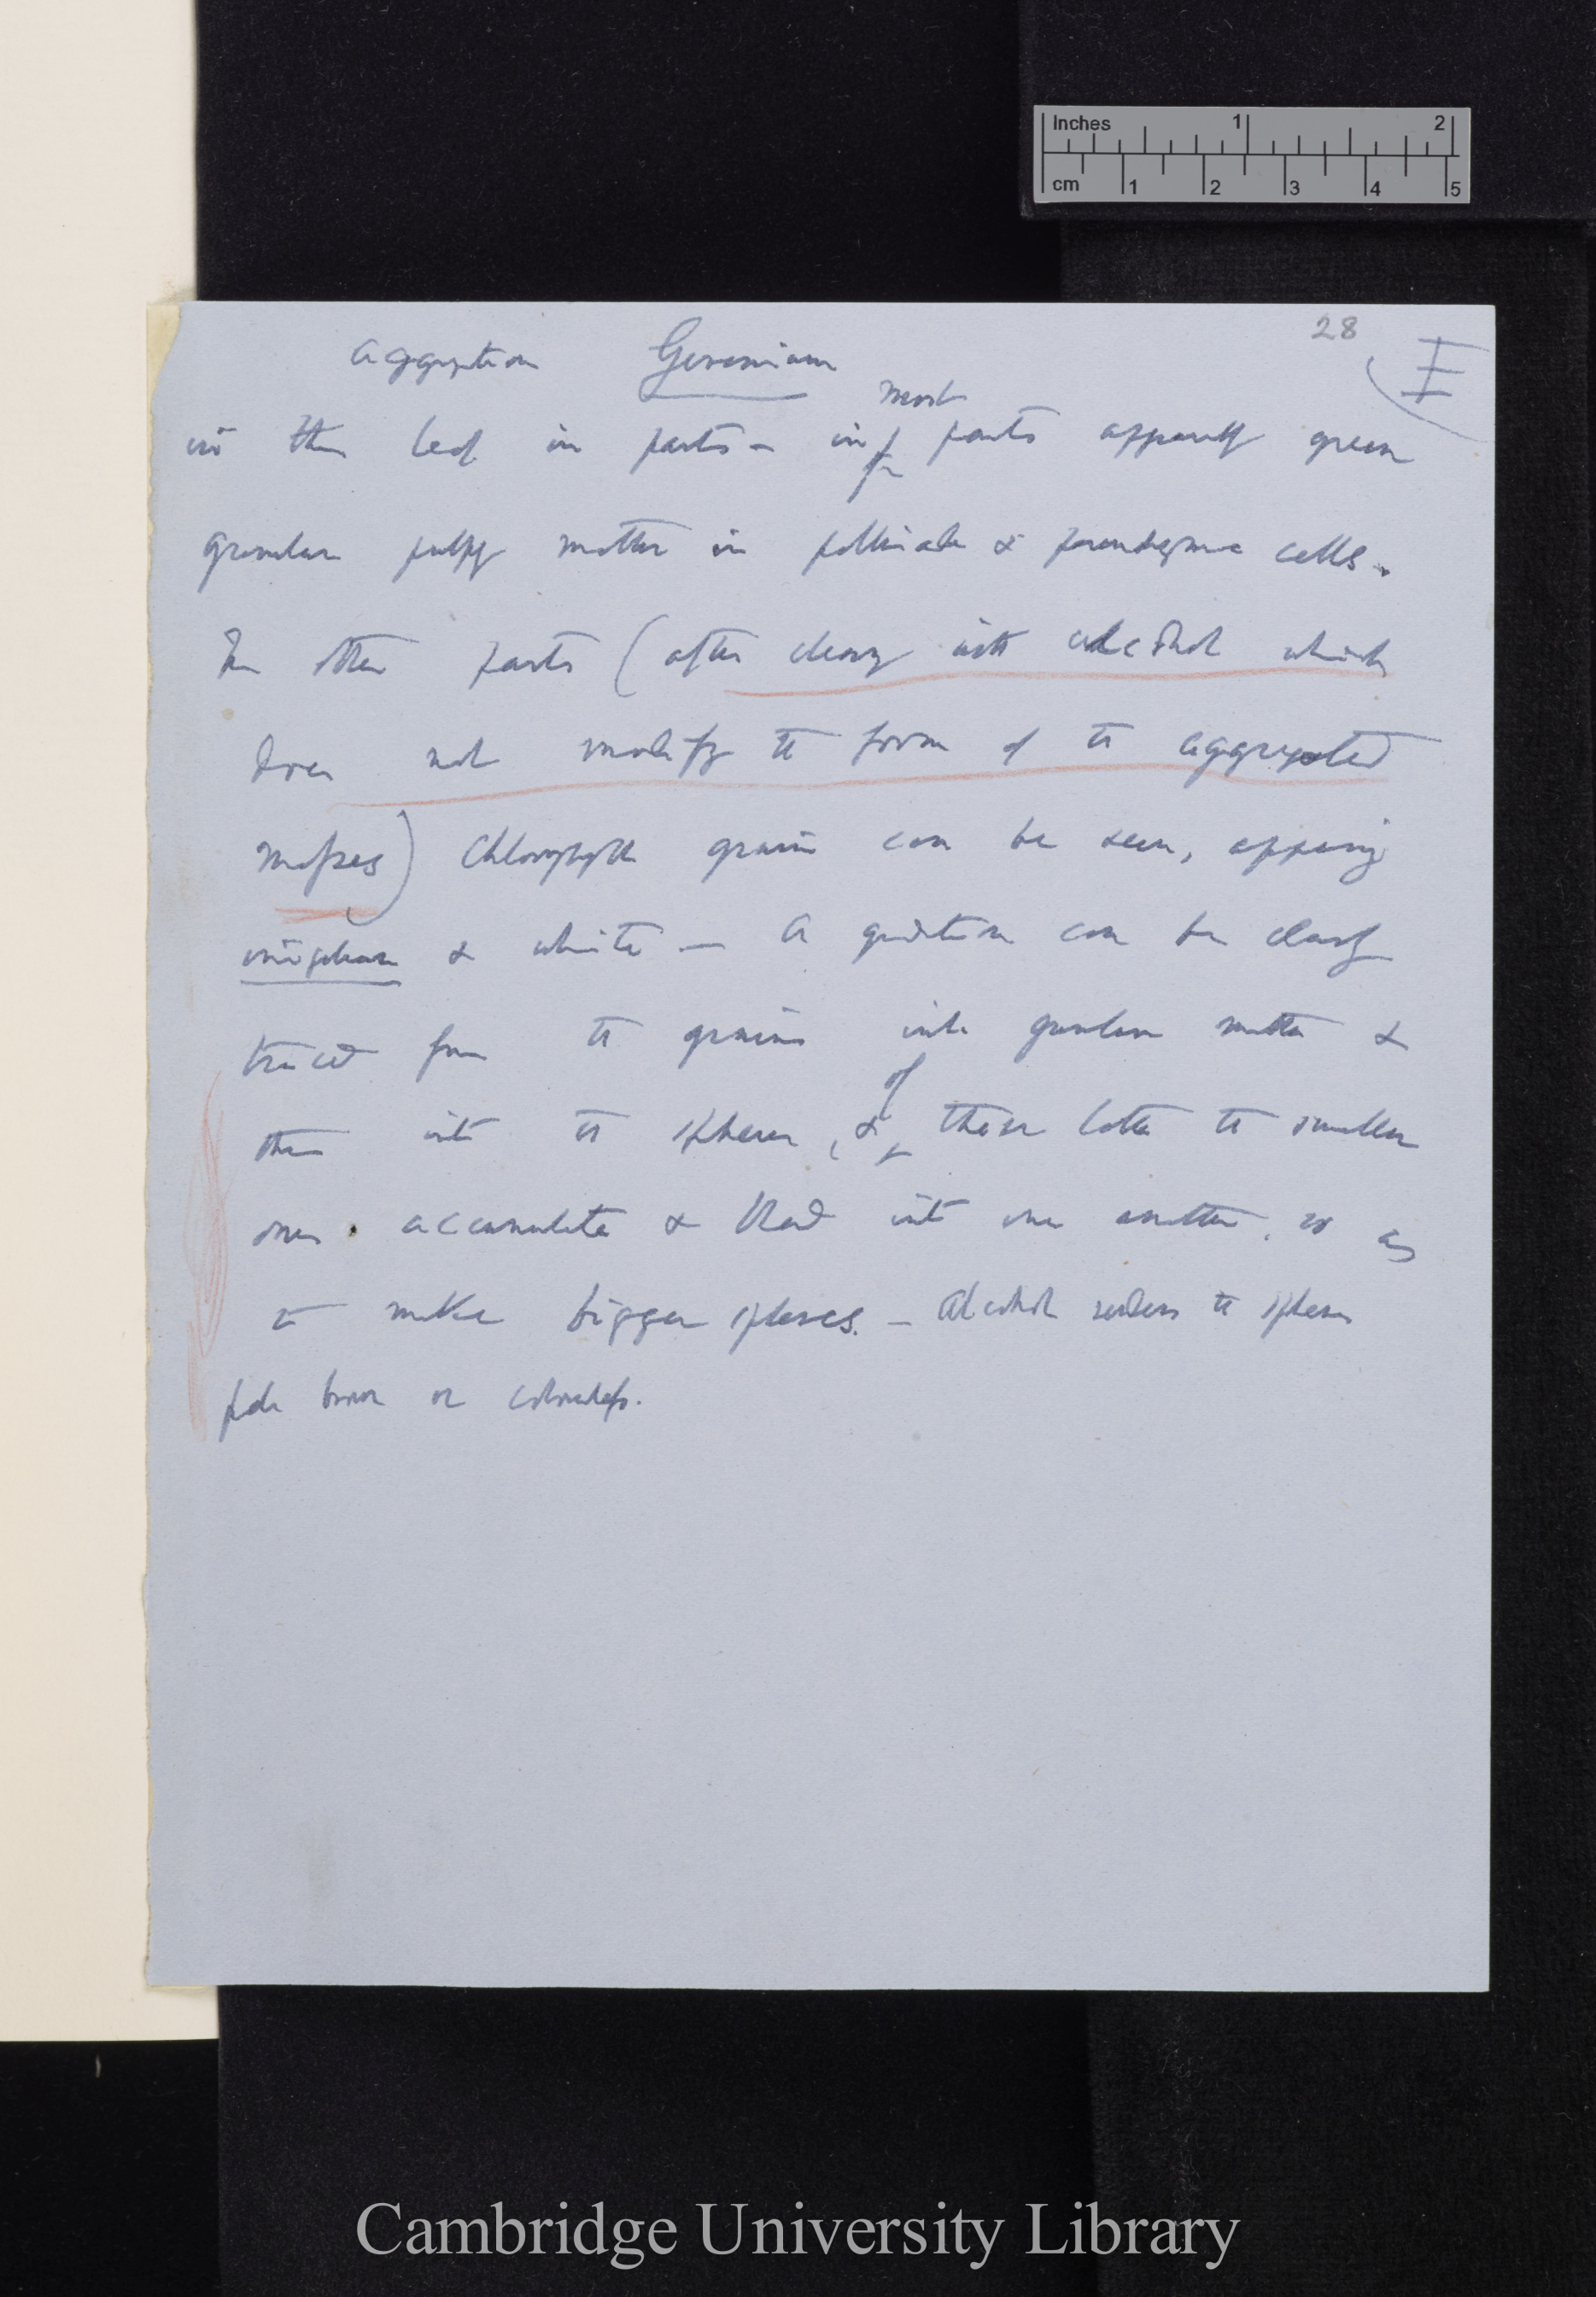 Inches 1 2
cm 1 2 3 4 5
28
Aggregation Geranium I
most
in this leaf in parts — in parts apparently green
granular pulpy matter in palisade & parenchyma cells.
In other parts (after clearing with alcohol which
does not modify the form of the aggregated
masses) Chlorophyll grains can be seen, appearing
& white — A gradation can be clearly
traced from the grains into granular matter &
of
then into the spheres, & these latter the smaller
ones accumulate & blend into one another, so as
to make bigger spheres. — Alcohol renders the spheres
pale brown or colourless.
Cambridge University Library